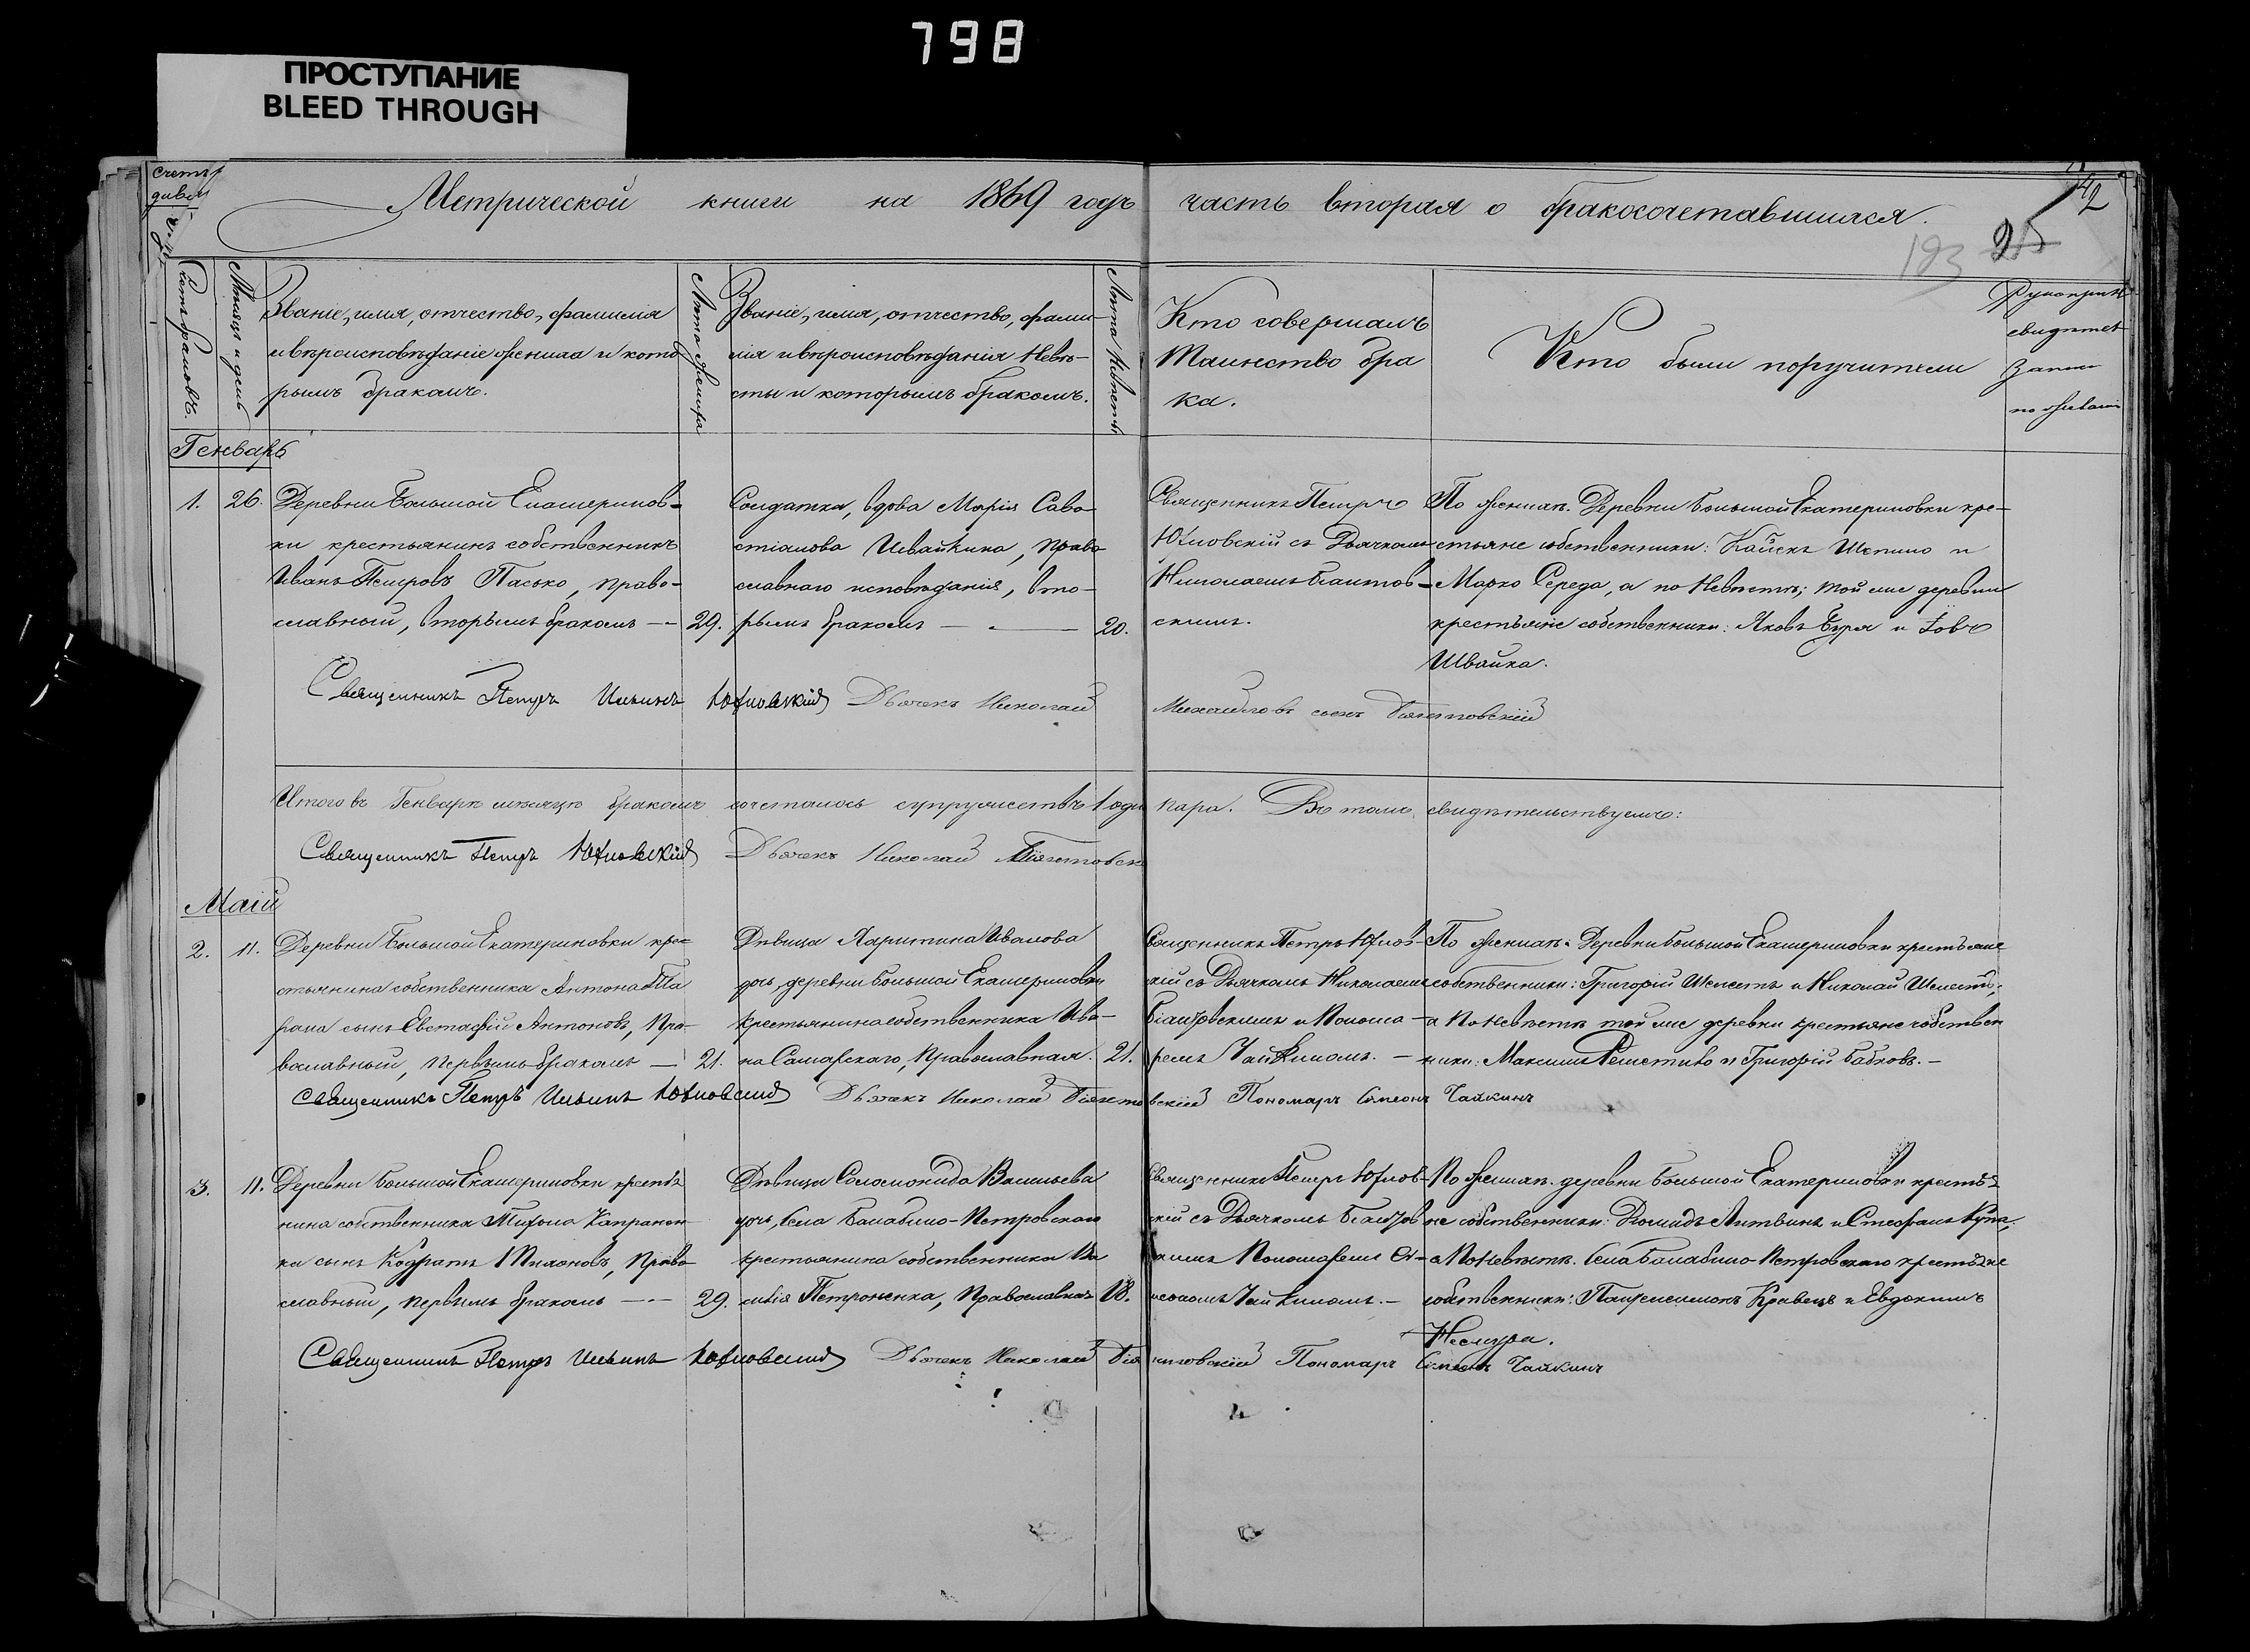 798
ПРОСТУПАНИЕ
BLEED THROUGH
счетъ
Метрической книги на 1869 годъ часть вторая о бракосочетавшихся.
42
25
193
Счетъ браковъ.
Мѣсяцъ и день
Званіе, имя, отчество, фамилія
и вѣроисповѣданіе жениха и кото
рымъ бракомъ.
Лѣта жениха
Званіе, имя, отчество, фами-
лія и вѣроисповѣданія невѣ-
сты и которымъ бракомъ.
Лѣта невѣсты
Кто совершалъ
Таинство бра
ка.
Кто были поручители
Рукоприк
свидѣтел
записи
по желані
Генварь
1. 26.
Деревни Большой Екатеринов-
ки крестьянинъ собственникъ
Иванъ Петровъ Пасько, право-
славный, вторымъ бракомъ — 29.
Солдатка, вдова Марія Сава-
стіанова Швайкина, право
славнаго исповѣданія, вто-
рымъ бракомъ — 20.
Священникъ Петръ
съ Дьячкомъ
Николаемъ
скимъ.
По женихѣ. Деревни Большой Екатериновки кре-
стьяне собственники: и
Марко Середа, а по невѣстѣ; той же деревни
крестьяне собственники: Яковъ и Іовъ
Швайка.
Священникъ Петръ Ильинъ Дьячекъ Николай Михайловъ сынъ
Итого въ Генварѣ мѣсяцѣ бракомъ сочеталось супружествъ 1 одна пара. Въ томъ свидѣтельствуемъ:
Священникъ Петръ Дьячекъ Николай
Маій
2. 11.
Деревни Большой Екатериновки кре-
стьянина собственника Антона Та
рана сынъ Евстафій Антоновъ, Пра-
вославный, первымъ бракомъ — 21.
Дѣвица Харитина Иванова
дочь, деревни Большой Екатериновки
крестьянина собственника Ива-
на Самарскаго, Православная. 21.
Священникъ Петръ
скій съ Дьячкомъ Николаемъ
и Понома-
ремъ Чайкинымъ. —
По женихѣ: Деревни Большой Екатериновки крестьяне
собственники: Григорій Шелестъ и Николай Шелестъ;
а по невѣстѣ той же деревни крестьяне собствен
ники: Максимъ и Григорій Бабковъ. —
Священникъ Петръ Ильинъ Дьячекъ Николай Пономарь Симеонъ Чайкинъ
3. 11.
Деревни Большой Екатериновки крестья
нина собственника Тихона
ка сынъ Кодратъ Тихоновъ, Право
славный, первымъ бракомъ — 29.
Дѣвица Соломонида Васильева
дочь, села Балабино-Петровскаго
крестьянина собственника Ва
силія Петроненка, Православная 18.
Священникъ Петръ
скій съ Дьячкомъ
Пономаремъ Си-
меономъ Чайкинымъ. —
По женихѣ. деревни Большой Екатериновки крестья
не собственники: Діомидъ Литвинъ и Стефанъ
а по невѣстѣ. села Балабино-Петровскаго крестьяне
собственники: Пантелеимонъ Кравецъ и Евдокимъ
Священникъ Петръ Ильинъ Дьячекъ Николай Пономарь Симеонъ Чайкинъ